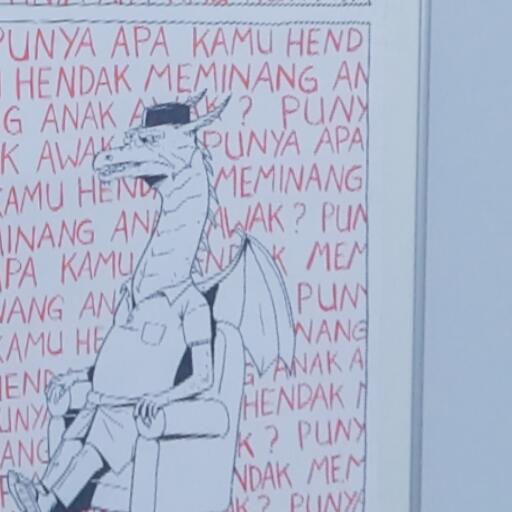 PUNYA APA KAMU HEND
HENDAK MEMINANG AN
G ANAK A K? PUNY
K AWAK PUNYA APA
KAMU HENDA MEMINANG
INANG ANA AWAK? PUN
APA KAMU ENDAK MEM
NANG AN PUNY
KAMU HE NANG
HEND G ANAK A
UNYA HENDAK
ANG K? PUNY
P NDAK MEM
K? PUNYA